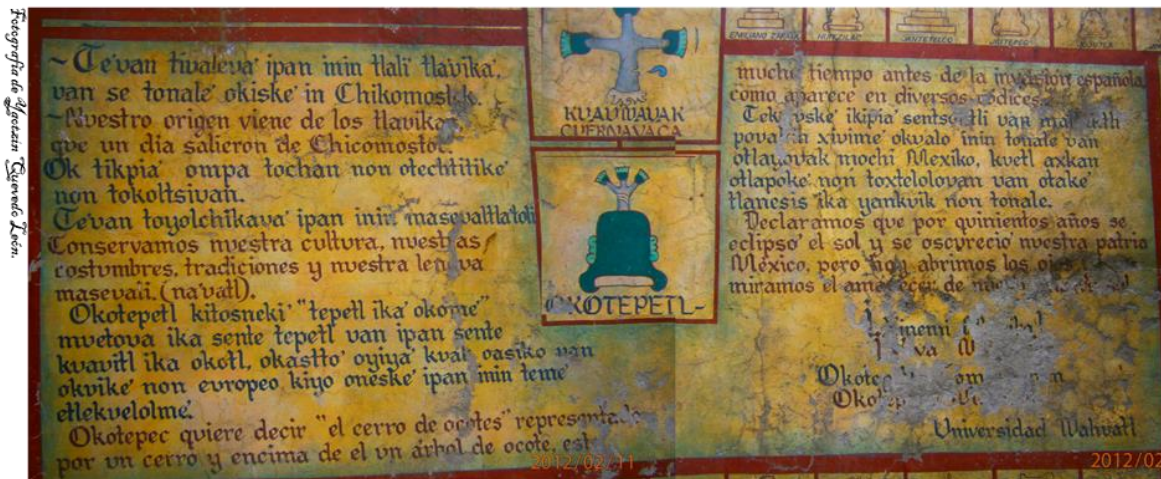 Fotografía de Yaotzin Quevedo León.
~Te'van tivaleva' ipan inin tlali tlavika',
van se tonale' okiske' in
~Nuestro origen viene de los
que un dia salieron de
Ok tikpia' ompa tochan non otechtitike'
non tokoltsivan.
Te'van toyolchikava' ipan inin
Conservamos nuestra cultura, nuestras
costumbres, tradiciones y nuestra lengva
masevali. (na'vatl).
Okotepetl kitosneki' "tepetl ika' okome'"
mvetova ika sente tepetl van ipan sente
kvavitl ika okotl, okastto' oyiya' kvak oasiko van
okvike' non evropeo, kiyo oneske' ipan inin teme'
etlekvelolme'.
Okotepec quiere decir "el cerro de ocotes"
por vn cerro y encima de el vn árbol de ocote,
KVAVNAVAK
CUERNAVACA
OKOTEPETL-
EMILIANO ZAPATA
HUITZILAC
JANTETELCO
JIUTEPEC
mucho tiempo antes de la invasión española
como aparece en diversos códices.
ikipia' van
xivime' okvalo' inin tonale' van
otlayovak mochi Mexiko, kvetl axkan
otlapoke' non toxtelolovan van otake'
tlanesis ika yankvik non tonale.
Declaramos que por quinientos años se
eclipso' el sol y se oscurecio' nvestra patria
México, pero hoy abrimos los ojos
miramos el amanecer de
Universidad Nahuatl
2012/02/11
2012/02